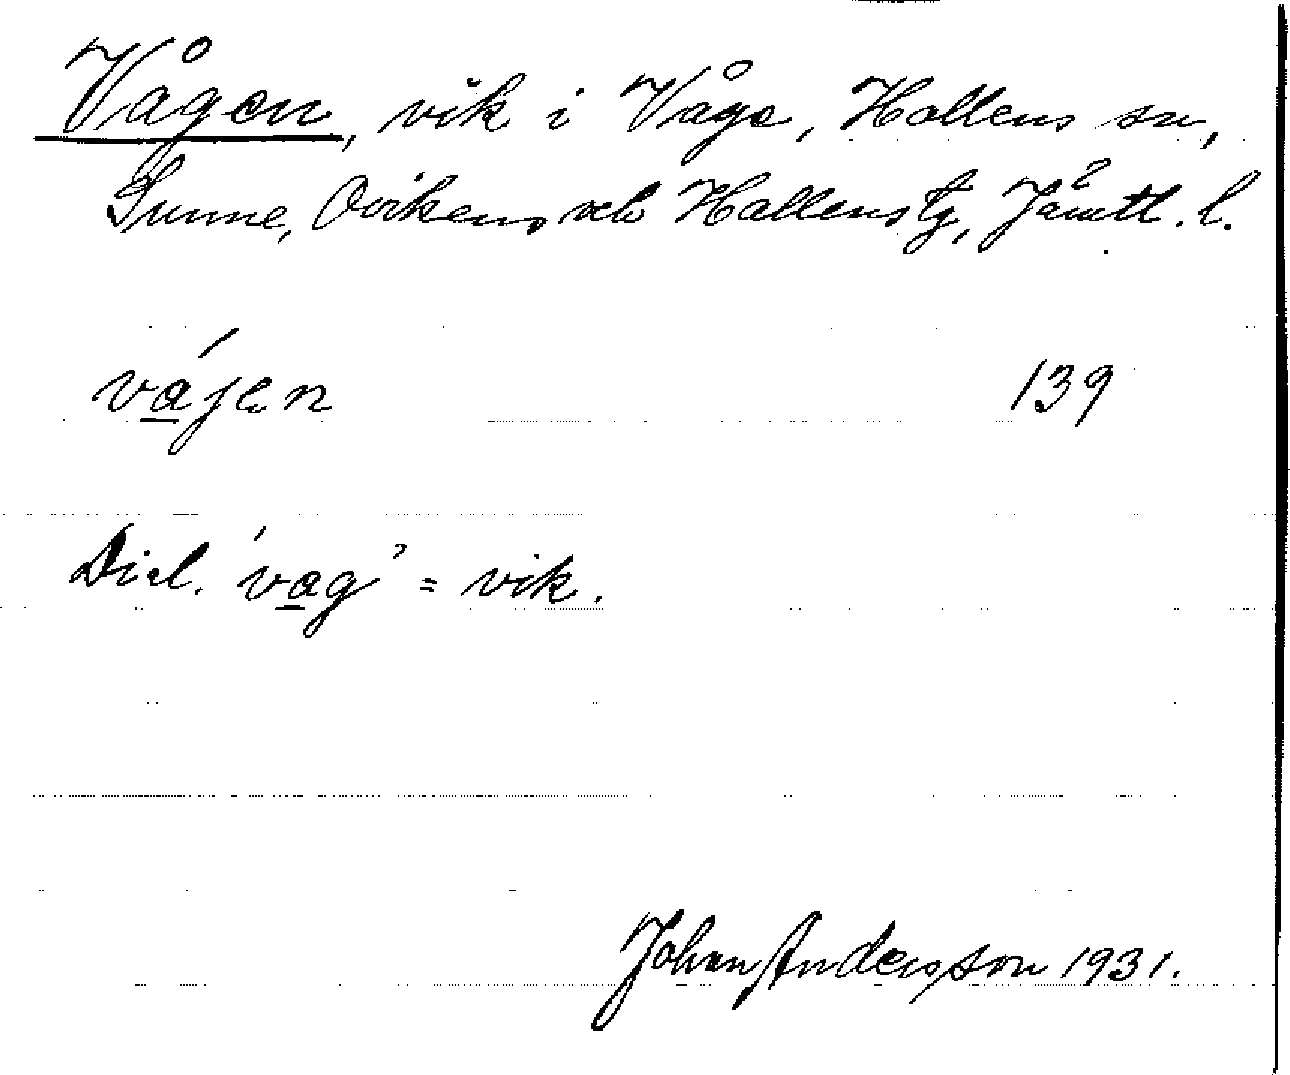 Vågen, vik i Våge, Hallens sn,
Sunne, Ovikens och Hallens tg, Jämtl. l.
vájen 139
Dial. 'vag' = vik.
Johan Andersson 1931.